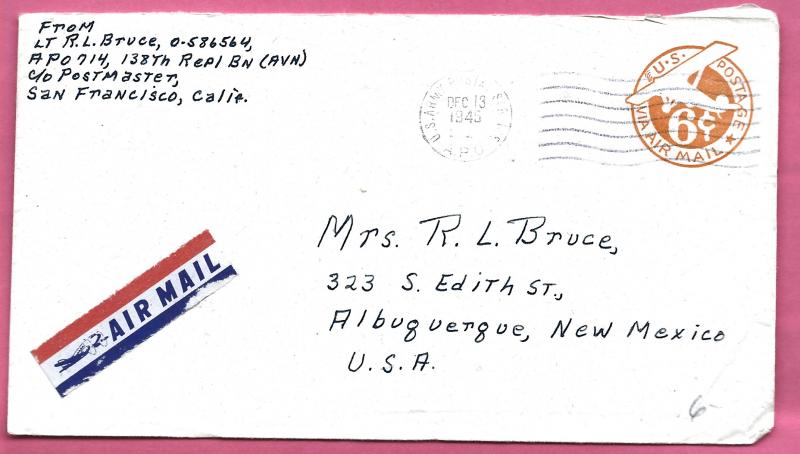 From
Lt R.L. Bruce, O-586564,
APO 714, 138th Repl Bn (AVN)
c/o Postmaster,
San Francisco, Calif.
U.S. ARMY POSTAL
DEC 13
1945
A.P.O.
U.S. POSTAGE
6¢
VIA AIR MAIL
AIR MAIL
Mrs. R. L. Bruce,
323 S. Edith St.,
Albuquerque, New Mexico
U.S.A.
6-